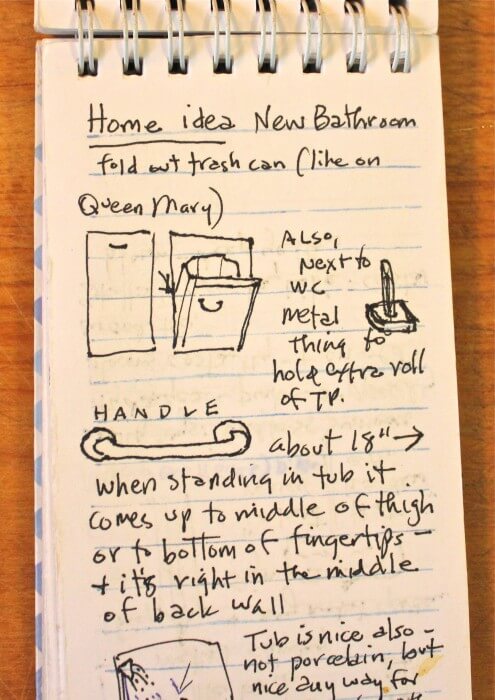 Home idea New Bathroom
fold out trash can (like on
Queen Mary)
ALSO,
next to
WC
metal
thing to
hold extra roll
of TP.
HANDLE
about 18" →
when standing in tub it
comes up to middle of thigh
or to bottom of fingertips –
+ it's right in the middle
of back wall
Tub is nice also –
not porcelain, but
nice any way for